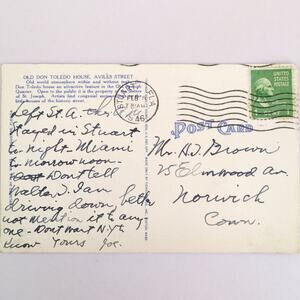 OLD DON TOLEDO HOUSE, AVILES STREET
Old world atmosphere within and without makes
Don Toledo house an attractive feature in the
Quarter. Open to the public it is the property of
of St. Joseph. Artists find congenial
little houses of the historic street.
FLA.
FEB
1946
UNITED STATES POSTAGE
POST CARD
Left St A. this
stayed in Stuart
to night. Miami
to morrow noon -
Dont tell
Walter I. I am
driving down, better
not mention it to any
one - Dont want N.Y. to
know Yours Joe.
Mr. A. I. Brown
75 Elmwood Av.
Norwich
Conn.